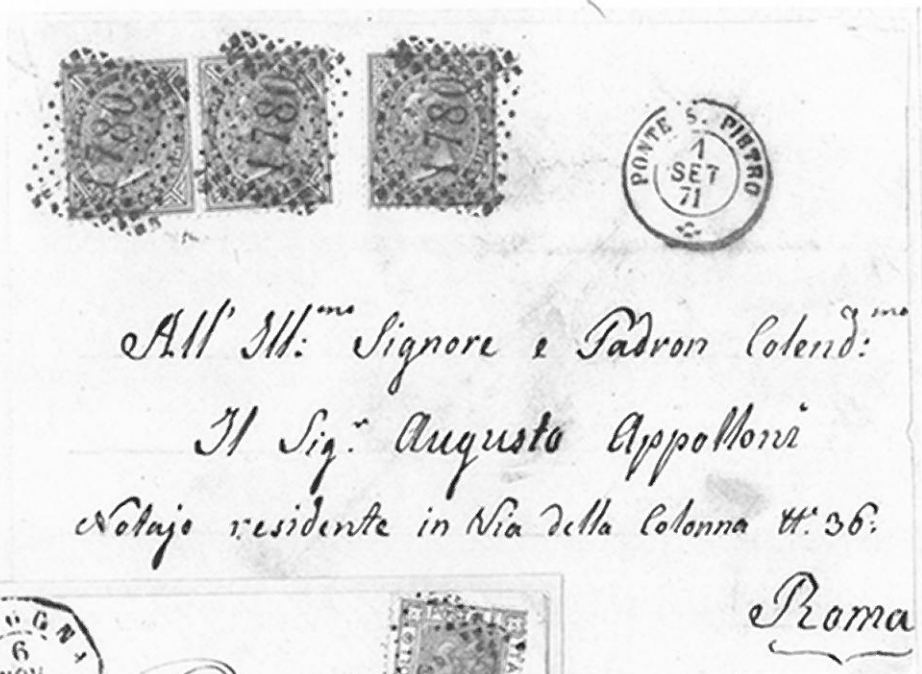 1780
1780
1780
PONTE S. PIETRO
1
SET
71
All' Ill:mo Signore e Padron Colend:mo
Il Sig.r Augusto Appolloni
Notajo residente in Via della Colonna N.º 36.
Roma
OGNA
6
NOV